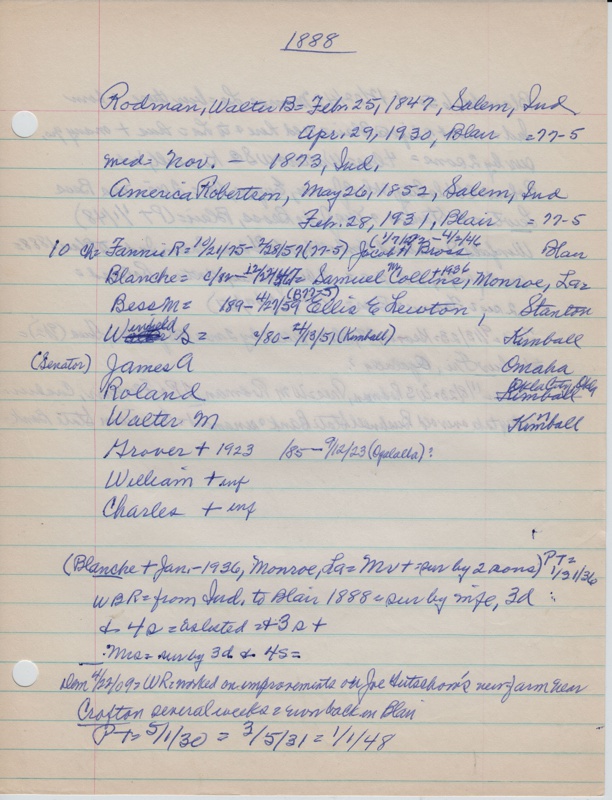 1888
Rodman, Walter B = Feb. 25, 1847, Salem, Ind
Apr. 29, 1930, Blair = 77-5
med = Nov. - 1873, Ind.
America Robertson, May 26, 1852, Salem, Ind
Feb. 28, 1931, Blair = 77-5
10 ch = Fannie R = 10/21/75 - 2/28/57 (77-5) Jacob H Bross - 4/2/46 Blair
Blanche = Samuel Collins, + 1936 Monroe, La =
Bess M = 189 - 4/27/59 (B77-5) Ellis E Lewton, Stanton
Winfield S = 2/80 - 2/13/51 (Kimball) Kimball
(Senator) James A Omaha
Roland Okla City, Okla
Walter M Kimball
Grover + 1923 /85 - 9/12/23 (Ogalalla) :
William + inf
Charles + inf
(Blanche + Jan. - 1936, Monroe, La = Mr + = sur by 2 sons) PT = 1/31/36
WBR = from Ind. to Blair 1888 = sur by wife, 3d :
& 4s = 3s +
Mrs = sur by 3d & 4s =
4/22/09 = WR = worked on improvements on Joe new farm near
Crofton several weeks = now back in Blair
PT = 5/1/30 = 3/5/31 = 1/1/48